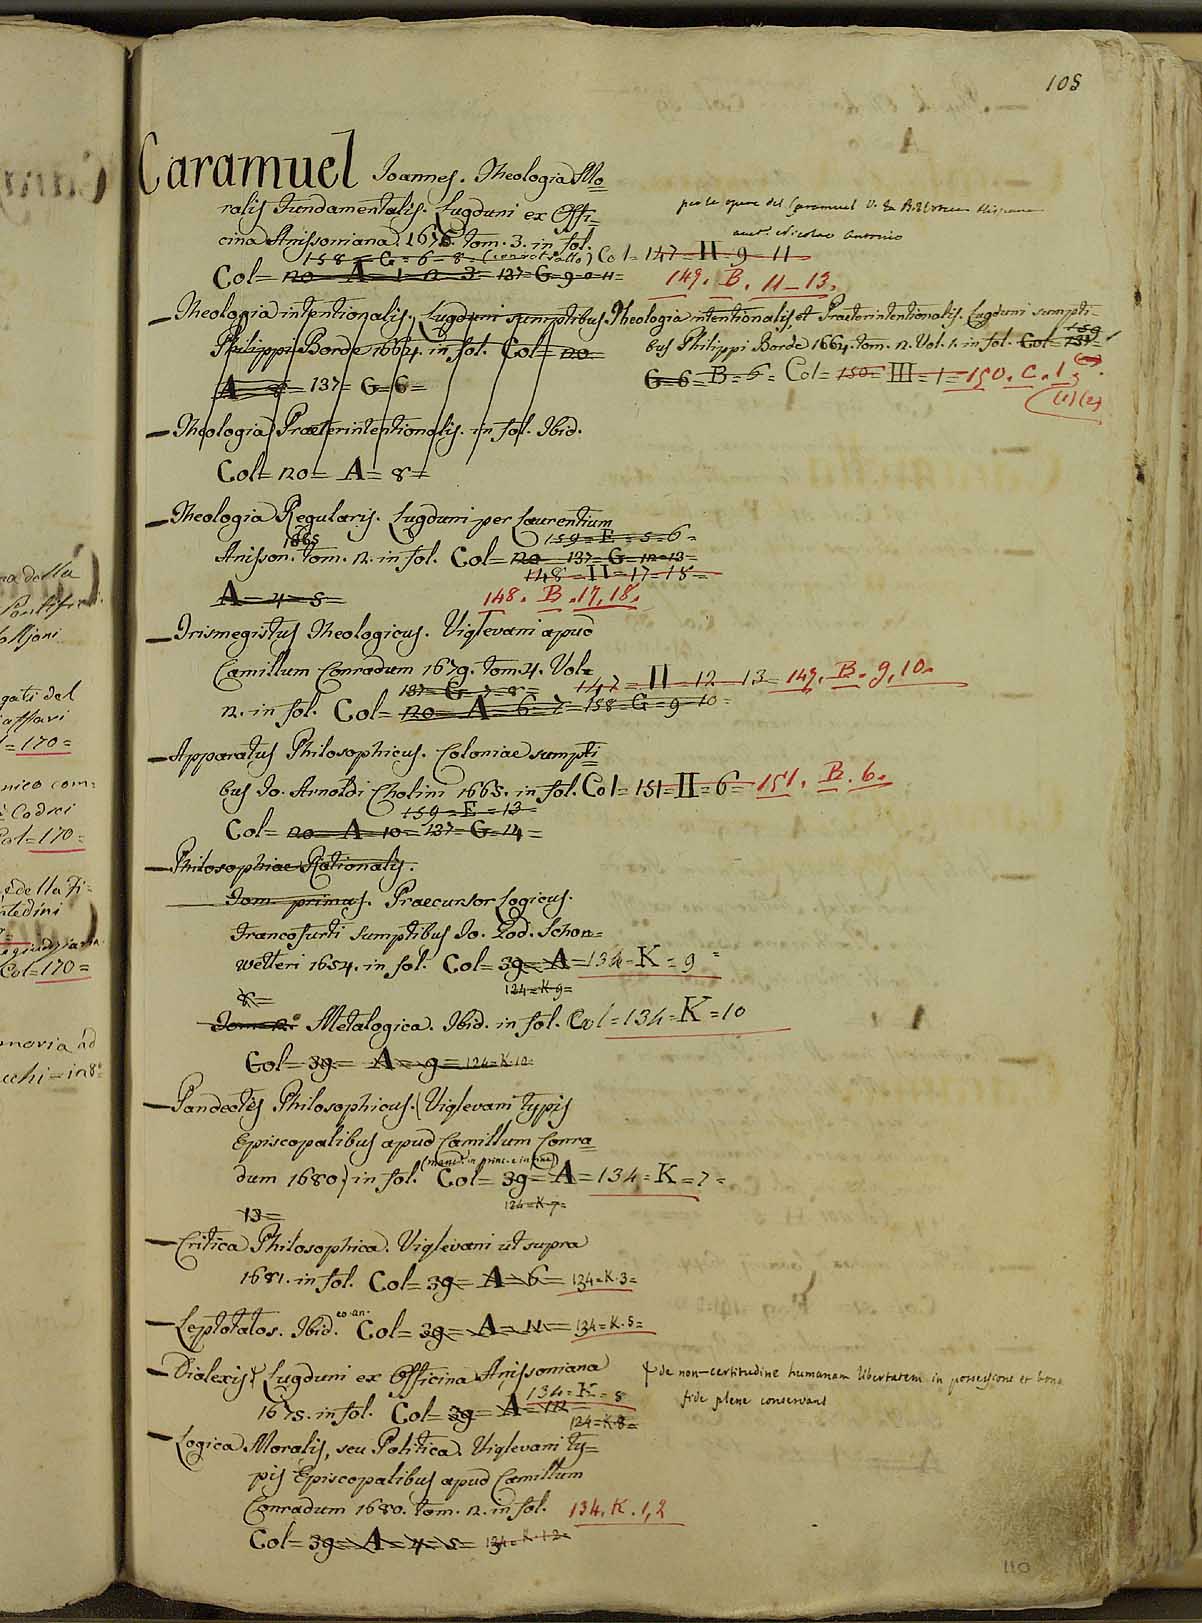 105
Caramuel Joannes. Theologia Mo=
ralis Fundamentalis. Lugduni ex Offi=
cina Anissoniana. 1675. tom. 3. in fol.
158 = G = 6 = 8 = Col = 147 = II = 9 = 11
Col = 120 = A = 1 = 2 = 3 = 137 = G = 9 = 11 =
149. B. 11 - 13.
per le opere del Caramuel V. la Biblioteca Hispana
auct. Nicolao Antonio
— Theologia intentionalis. Lugduni sumptibus
Philippi Borde 1664. in fol. Col = 120 =
A = 137 = G = 6 =
Theologia intentionalis, et Praeterintentionalis. Lugduni sumpti-
bus Philippi Borde 1664. tom. 2. Vol. 1. in fol. Col = 137 =
159
G = 6 = B = 6 = Col = 150 = III = 1 = 150. C. 1.
(1) (2)
— Theologia Praeterintentionalis. in fol. Ibid.
Col = 120 = A = 8 =
— Theologia Regularis. Lugduni per Laurentium
1665 159 = E = 5 = 6 =
Anisson. tom. 2. in fol. Col = 120 = 137 = G = 12 = 13 =
148 = II = 17 = 18 =
A = 4 = 5 = 148. B. 17, 18.
— Trismegistus Theologicus. Viglevani apud
Camillum Conradum 1679. tom. 4. Vol=
147 = II = 12 = 13 = 149. B. 9, 10.
137 = G = 7 = 8 =
2. in fol. Col = 120 = A = 6 = 7 = 158 = G = 9 = 10 =
— Apparatus Philosophicus. Coloniae sumpti=
bus Jo. Arnoldi Cholini 1665. in fol. Col = 151 = II = 6 = 151. B. 6.
159 = E = 13 =
Col = 120 = A = 10 = 137 = G = 14 =
— Philosophiae Rationalis.
Tom. primus. Praecursor Logicus.
Francofurti sumptibus Jo. God. Schon=
wetteri 1654. in fol. Col = 39 = A = 134 = K = 9 =
124 = K = 9 =
8 =
Tom. 2.º Metalogica. Ibid. in fol. Col = 134 = K = 10
Col = 39 = A = 9 = 124 = K = 10 =
— Pandectes Philosophicus. (Viglevani typis
Episcopalibus apud Camillum Conra=
dum 1680.) in fol. (manc. in princ. e in fine) Col = 39 = A = 134 = K = 7 =
124 = K = 7 =
13 =
— Critica Philosophica. Viglevani ut supra
1681. in fol. Col = 39 = A = 6 = 134 = K = 3 =
— Leptotatos. Ibid. eo. an. Col = 39 = A = 11 = 134 = K = 5 =
— Dialexis Lugduni ex Officina Anissoniana
134 = K = 8
1675. in fol. Col = 39 = A = 12 =
124 = K = 8 =
de non-certitudine humanam libertatem in possessione et bona
fide plene conservans
— Logica Moralis, seu Politica. Viglevani ty=
pis Episcopalibus apud Camillum
Conradum 1680. tom. 2. in fol. 134. K. 1, 2
Col = 39 = A = 4 = 5 = 124 = K = 1 = 2 =
110